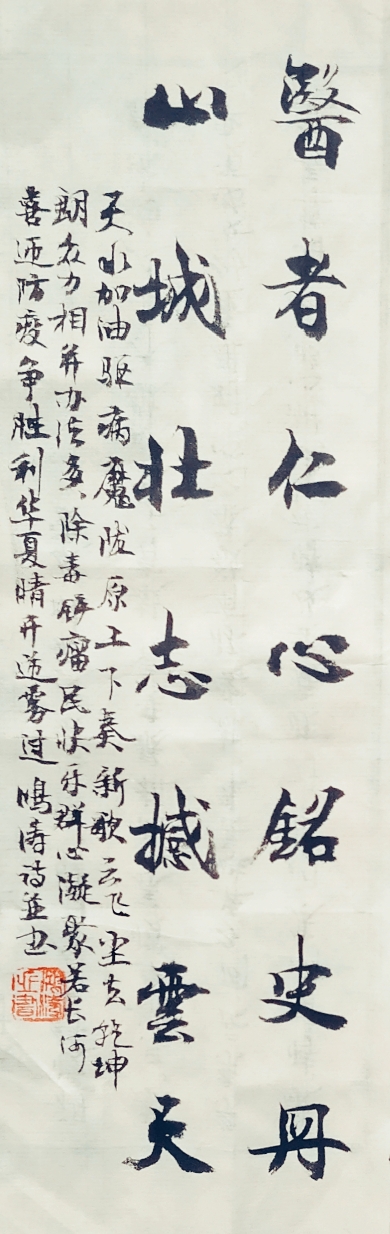 醫者仁心銘史冊
山城壮志撼雲天
天水加油驱病魔陇原上下奏新歌云飞尘去乾坤
朗众力相并办法多除毒锌瘤民快乐群心凝聚若长河
喜迎防疫争胜利华夏晴开送雾过鸣涛诗并书